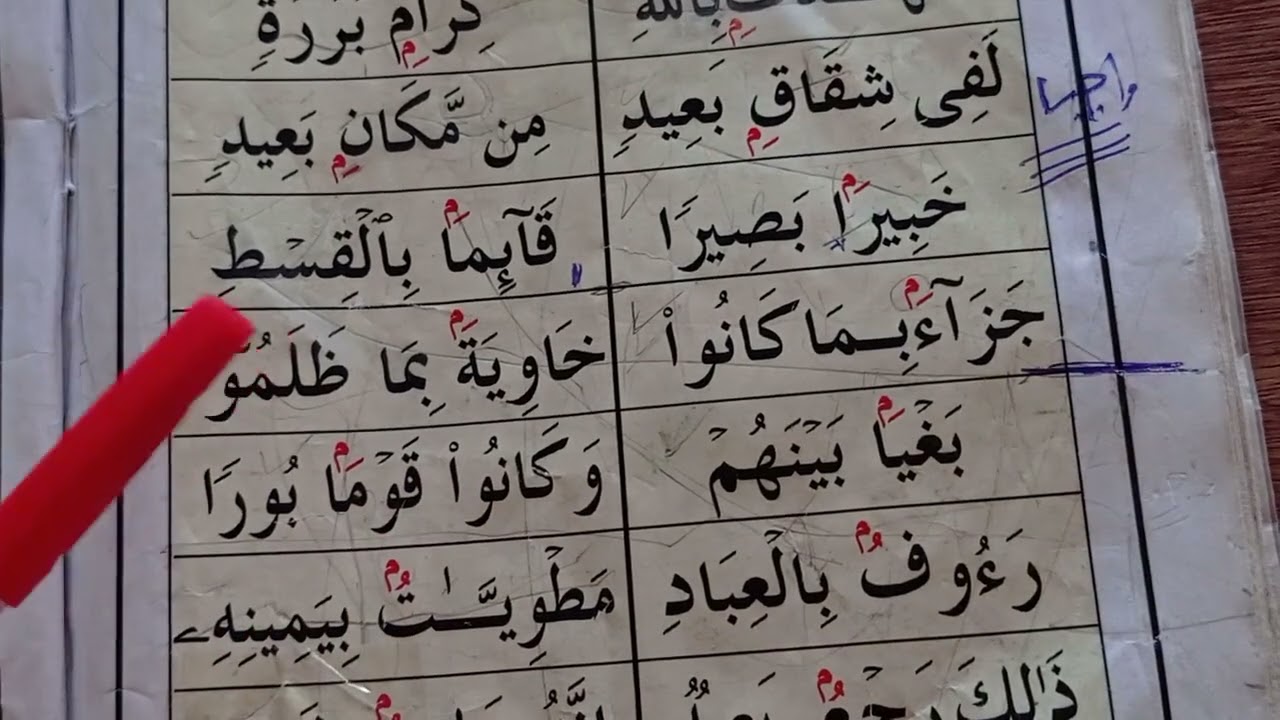 بِٱللَّهِ كِرَامِۭ بَرَرَةٖ
لَفِى شِقَاقِۭ بَعِيدٖ مِن مَّكَانِۭ بَعِيدٖ
خَبِيرَۢا بَصِيرٗا قَآئِمَۢا بِٱلۡقِسۡطِ
جَزَآءَۢ بِمَا كَانُواْ خَاوِيَةَۢ بِمَا ظَلَمُوٓاْ
بَغۡيَۢا بَيۡنَهُمۡ وَكَانُواْ قَوۡمَۢا بُورٗا
رَءُوفُۢ بِٱلۡعِبَادِ مَطۡوِيَّٰتُۢ بِيَمِينِهِۦ
ذَٰلِكَ رَجۡعُۢ